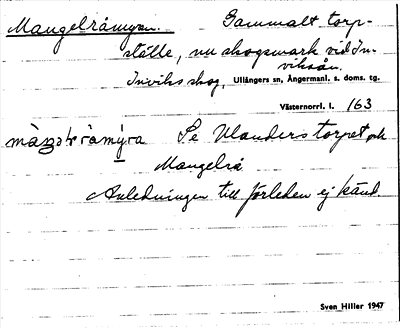 Mangelråmyran. Gammalt torp-
ställe, nu skogsmark vid In-
viksån.
Inviks skog, Ullångers sn, Ångermanl. s. doms. tg.
Västernorrl. l. 163
Se Ulanders torpet och
Mangelså
Anledningen till förleden ej känd.
Sven Hiller 1947